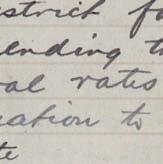 strict fo
ending th
al rates
ation to
te